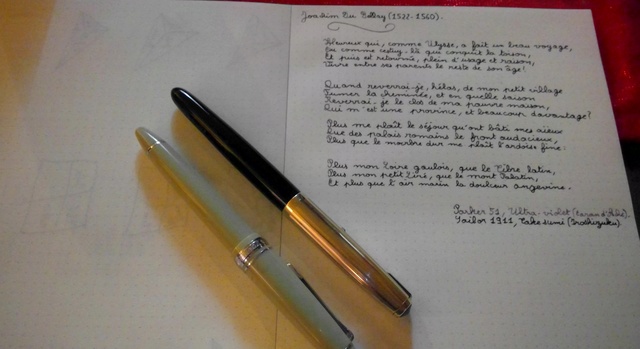 Joachim Du Bellay (1522-1560).
Heureux qui, comme Ulysse, a fait un beau voyage,
Ou comme cestuy-là qui conquit la toison,
Et puis est retourné, plein d'usage et raison,
Vivre entre ses parents le reste de son âge!
Quand reverrai-je, hélas, de mon petit village
Fumer la cheminée, et en quelle saison
Reverrai-je le clos de ma pauvre maison,
Qui m'est une province, et beaucoup davantage?
Plus me plaît le séjour qu'ont bâti mes aïeux
Que des palais romains le front audacieux,
Plus que le marbre dur me plaît l'ardoise fine:
Plus mon Loire gaulois, que le Tibre latin,
Plus mon petit Liré, que le mont Palatin,
Et plus que l'air marin la douceur angevine.
Parker 51, Ultra-violet
Sailor 1911, Take sumi (Iroshizuku).